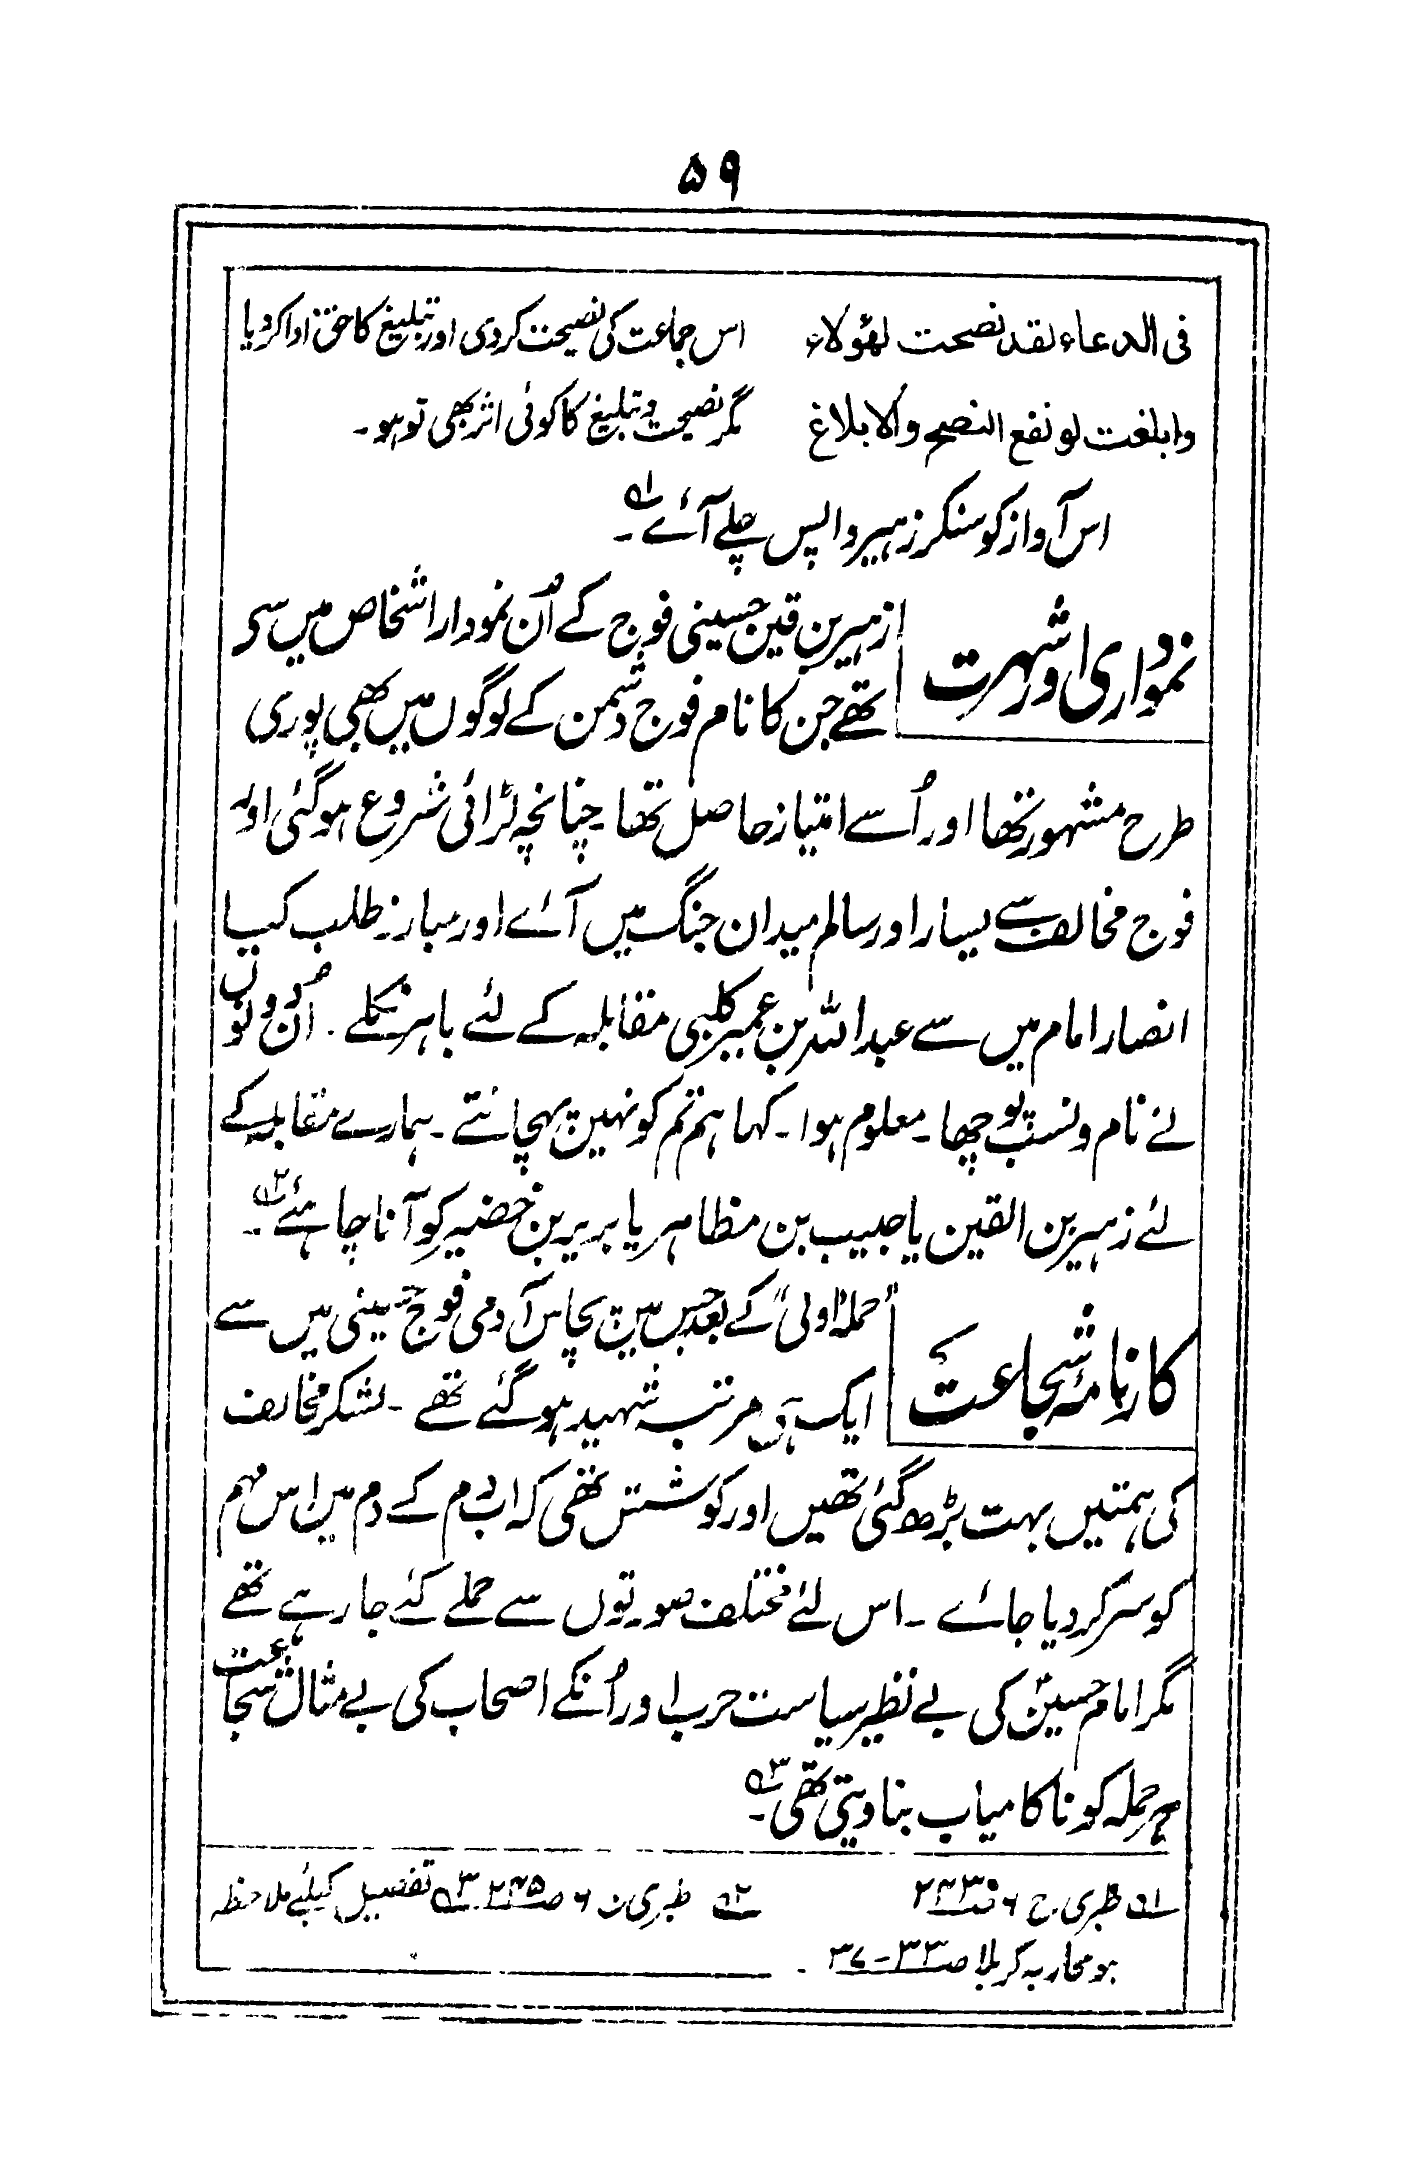 ۵۹
فی الدعاء لقد نصحت لھٰؤلاء اس جماعت کی نصیحت کردی اور تبلیغ کا حق ادا کر دیا
وابلغت لو نفع النصح والابلاغ مگر نصیحت و تبلیغ کا کوئی اثر بھی تو ہو۔
اس آواز کو سنکر زہیر واپس چلے آئے ۱؎۔
نموداری اور شہرت
زہیر بن قین حسینی فوج کے اُن نمودار اشخاص میں سے
تھے جن کا نام فوج دشمن کے لوگوں میں بھی پوری
طرح مشہور تھا اور اُسے امتیاز حاصل تھا۔ چنانچہ لڑائی شروع ہوگئی اور
فوج مخالف سے یسار اور سالم میدان جنگ میں آئے اور مبارز طلب کیا
انصار امام میں سے عبداللہ بن عمیر کلبی مقابلہ کے لئے باہر نکلے۔ اُن دونوں
نے نام و نسب پوچھا۔ معلوم ہوا۔ کہا ہم تم کو نہیں پہچانتے۔ ہمارے مقابلہ کے
لئے زہیر بن القین یا حبیب بن مظاہر یا بریر بن خضیر کو آنا چاہئے ۲؎۔
کارنامۂ شجاعت
”حملۂ اولی“ کے بعد جس میں پچاس آدمی فوج حسینی میں سے
ایک ہی مرتبہ شہید ہوگئے تھے۔ لشکر مخالف
کی ہمتیں بہت بڑھ گئی تھیں اور کوشش تھی کہ اب دم کے دم میں اس مہم
کو سر کر دیا جائے۔ اس لئے مختلف صورتوں سے حملے کئے جا رہے تھے
مگر امام حسینؑ کی بے نظیر سیاست حرب اور اُنکے اصحاب کی بے مثال شجاعت
ہر حملہ کو ناکامیاب بنا دیتی تھی ۳؎۔
۱؎ طبری ج ۶ ص۲۴۳ ۲؎ طبری ج ۶ ص۲۴۵ ۳؎ تفصیل کیلئے ملاحظہ
ہو محاربہ کربلا ص۳۳-۳۷۔